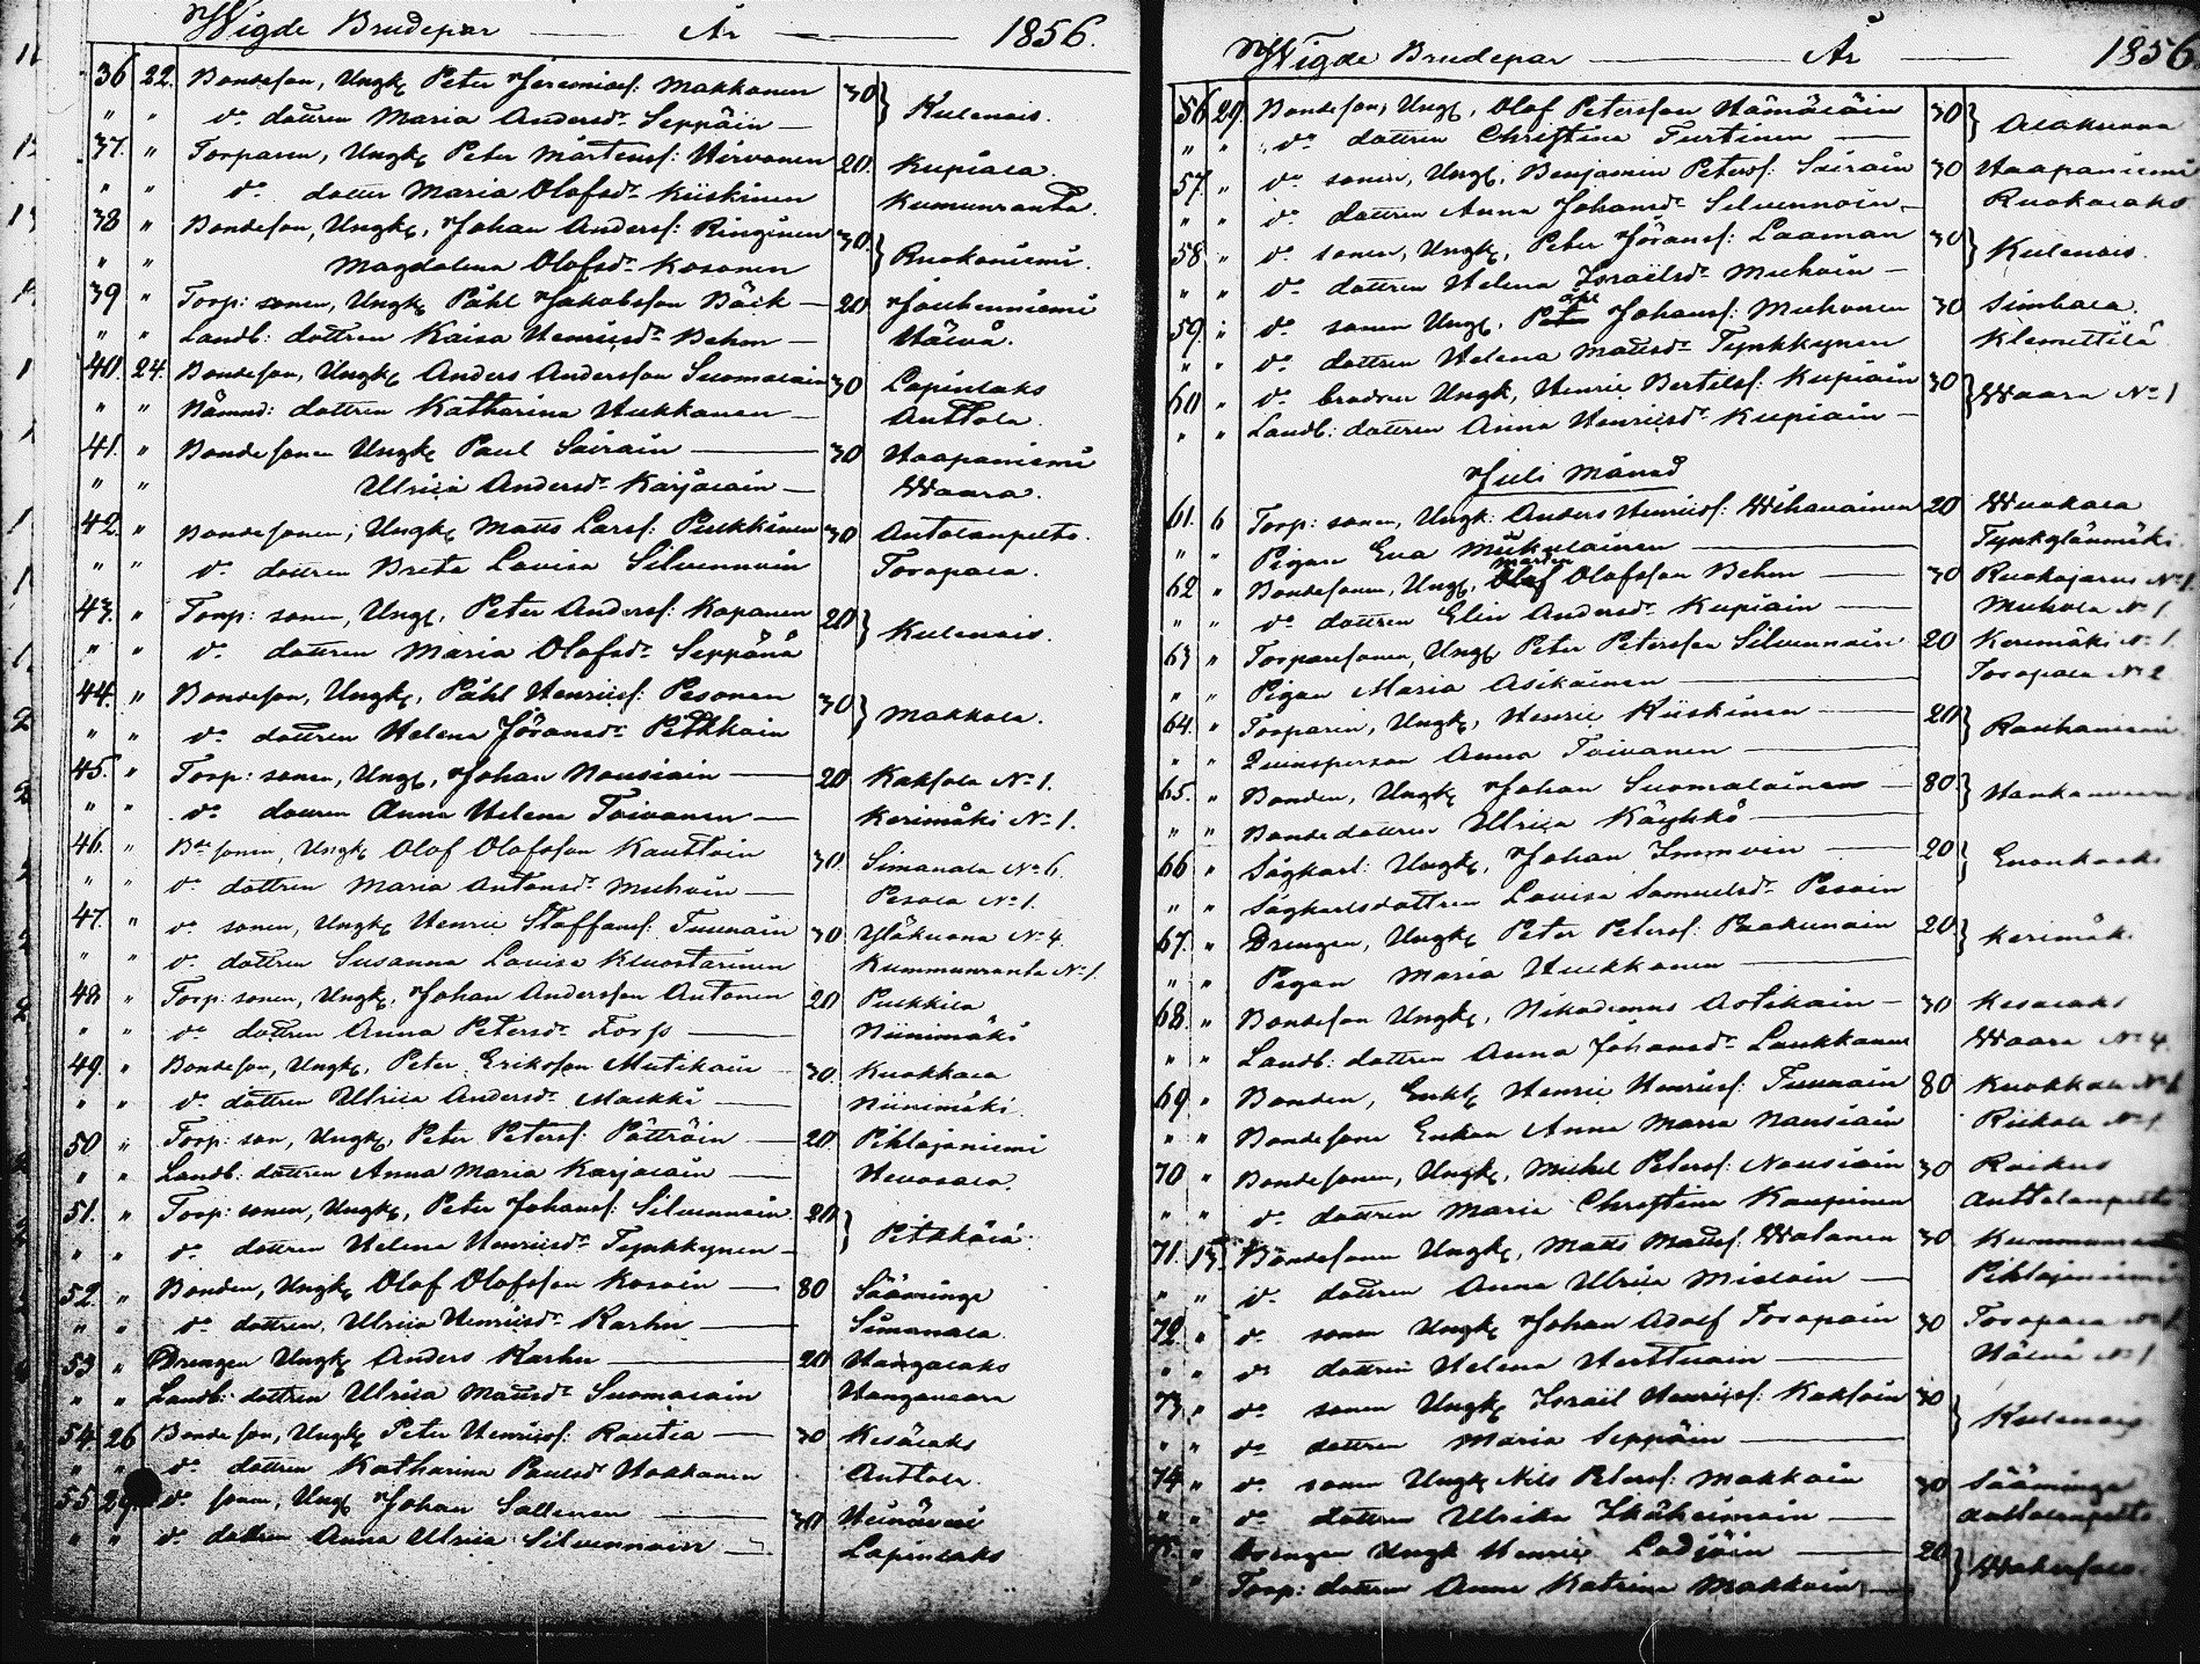 Wigde Brudepar — År — 1856.
36 22. Bondeson, Ungk. Peter Jeremiasf: Makkonen 30 } Kulenois.
" " do dottren Maria Andersdr Seppäin —
37. " Torparen, Ungk. Peter Mårtensf: Hirvonen 20. Kupiala.
" " do dotter Maria Olofsdr Kiiskinen Kumunranta.
38 " Bondeson, Ungk., Johan Andersf: Ringinen 30. } Ruokoniemi.
" " Magdalena Olofsdr Kosonen
39 " Torp: sonen, Ungk. Påhl Jakobsson Bäck — 20 Jouhenniemi
" " Landb: dottren Kaisa Henricsdr Behm — Hälvä.
40. 24. Bondeson, Ungk. Anders Andersson Suomalain 30 Lapinlaks
" " Nämnd: dottren Katharina Hukkanen — Anttola.
41. " Bondesonen Ungk. Paul Sairain — 30 Haapaniemi
" " Ulrica Andersdr Karjalain — Waara.
42. " Bondesonen, Ungk. Matts Larsf: Pukkinen 30 Antolanpelto.
" " do dottren Breta Lovisa Silvennoin Toropala.
43. " Torp: sonen, Ungk. Peter Andersf: Kopanen 20 } Kulenois.
" " do dottren Maria Olofsdr Seppänä
44. " Bondeson, Ungk., Påhl Henricsf: Pesonen 30 } Makkola.
" " do dottren Helena Jöransdr Pitkäin
45. " Torp: sonen, Ungk., Johan Nousiain — 20 Kaksola No 1.
" " do dottren Anna Helena Toivonen — Kerimäki No 1.
46. " Bde sonen, Ungk. Olof Olofsson Kauttoin 30. Simanala No 6.
" " do dottren Maria Antonsdr Muhoin — Pesola No 1.
47. " do sonen, Ungk. Henric Staffansf: Tuunain 30 Yläkuona No 4.
" " do dottren Susanna Lovisa Kluostarinen Kummunranta No 1.
48 " Torp: sonen, Ungk. Johan Andersson Antonen 20 Pukkila
" " do dottren Anna Petersdr Torp — Niinimäki
49. " Bondeson, Ungk. Peter Eriksson Mutikain 30. Kuokkala
" " do dottren Ulrica Andersdr Markki — Niinimäki
50 " Torp: son, Ungk. Peter Petersf: Pöttröin — 20. Pihlajaniemi
" " Landb: dottren Anna Maria Karjalain — Hevosala.
51. " Torp: sonen, Ungk., Peter Johansf: Silvennoin 20 } Pitkälä.
" " do dottren Helena Henricsdr Tynkkynen —
52. " Bonden, Ungk. Olof Olofsson Kosoin — 80 Sääminge
" " do dottren, Ulrica Henricsdr Karhu — Simanala.
53 " Drengen Ungk. Anders Karhu — 20 Hangalaks
" " Landb: dottren Ulrica Mattsdr Suomalain Hangavaara
54. 26 Bondeson, Ungk. Peter Henricsf: Rautia — 30 Kesälaks
" " do dottren Katharina Paulsdr Hokkanen Anttola.
55 29 do sonen, Ungk Johan Sallinen — 30 Heinävesi
" " do dottren Anna Ulrica Silvennoin — Lapinlaks
Wigde Brudepar — År — 1856.
56 29. Bondeson, Ungk., Olof Petersson Hämäläin 30 } Alakuona
" " do dottren Christina Turtinen —
57. " do sonen, Ungk., Benjamin Petersf: Sairain 30 Haapaniemi
" " do dottren Anna Johansdr Silvennoin — Ruokolaks
58 " do sonen, Ungk., Peter Jöransf: Laaman 30 } Kulenois.
" " do dottren Helena Israelsdr Muhoin —
59. " do sonen Ungk. Påhl Johansf: Muhonen 30 Simbala.
" " do dottren Helena Mattsdr Tynkkynen Klemettilä
60 " do brodren Ungk, Henric Bertelsf: Kupiain 30 } Waara No 1
" " Landb: dottren Anna Henricsdr Kupiain —
Juli Månad
61. 6 Torp: sonen, Ungk: Anders Henricsf: Wihavainen 20 Wuokala
" " Pigan Eva Mikulainen — Tynkylänmäki.
62 " Bondesonen, Ungk. Mårten Olofsson Behm — 30 Ruokojarvi No 1.
" " do dottren Elin Andersdr Kupiain — Muhola No 1.
63 " Torparesonen, Ungk Peter Petersson Silvennoin 20 Kerimäki No 1.
" " Pigan Maria Asikainen — Toropala No 2
64. " Torparen, Ungk., Henric Kiiskinen — 20 } Rauhaniemi
" " Qvinsperson Anna Toivanen —
65. " Bonden, Ungk. Johan Suomalainen — 80. }
" " Bondedottren Ulrica Käyhkö —
66 " Sågkarl: Ungk., Johan Immoin — 20 } Enonkoski
" " Sågkarlsdottren Lovisa Samuelsdr Pesoin
67. " Drengen, Ungk. Peter Petersf: Paakunain 20 } Kerimäki
" " Pigan Maria Hukkanen —
68. " Bondeson Ungk., Nikodemus Aotikain — 30 Kesälaks
" " Landb: dottren Anna Johansdr Laukkanen Waara No 4.
69 " Bonden, Enkl. Henric Henricsf: Tuunain 80 Kuokkala No 1
" " Bondesons Enkan Anna Maria Nousiain Riikola No 1
70 " Bondesonen, Ungk., Michel Petersf: Nousiain 30 Raikus
" " do dottren Maria Christina Kaupinen Anttolanpelto
71. 13. Bondesonen Ungk., Matts Mattsf: Walanen 30
" " do dottren Anna Ulrica Mielain — Pihlajaniemi
72 " do sonen Ungk. Johan Adolf Toropain 30 Toropala
" " do dottren Helena Herttuain — Hälvä No 1
73 " do sonen Ungk. Israil Henricsf: Kaksoin 30 } Kulenois
" " do dottren Maria Seppäin —
74 " do sonen Ungk Nils Petersf: Makkoin 30 Sääminge
" " do dottren Ulrika Ikäheimoin — Anttolanpelto
75. " Drengen Ungk Henric Ladjäin — 20 }
" Torp: dottren Anna Katrina Makkoin —